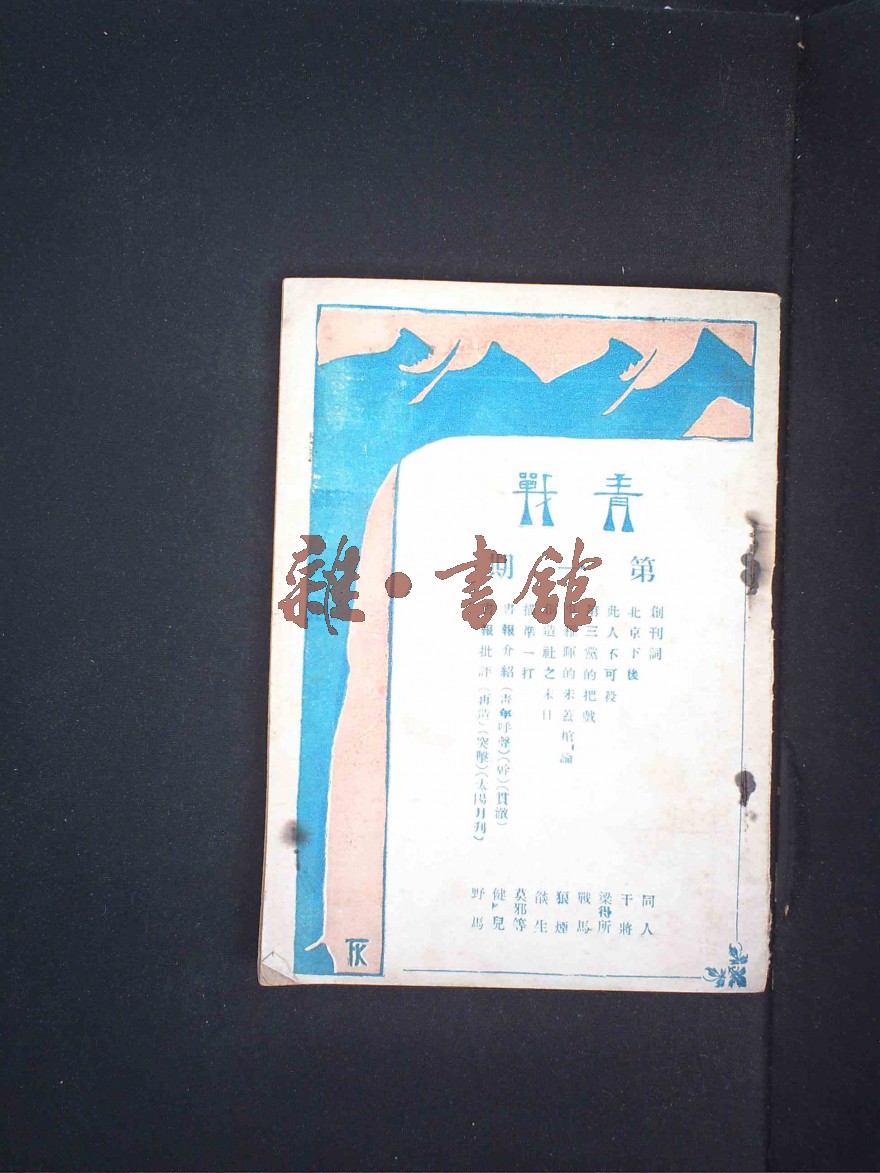 青戰
第一期
創刊詞
北京下後
此人不可殺
第三黨的把戲
暉的未蓋棺論
造社之末日
準一打
書報介紹(青年呼聲)(幹)(貫澈)
報批評(再造)(突擊)(太陽月刊)
同人
干將
梁得所
戰馬
狼煙
燄生
莫邪等
健兒
野馬
TK
雜·書館